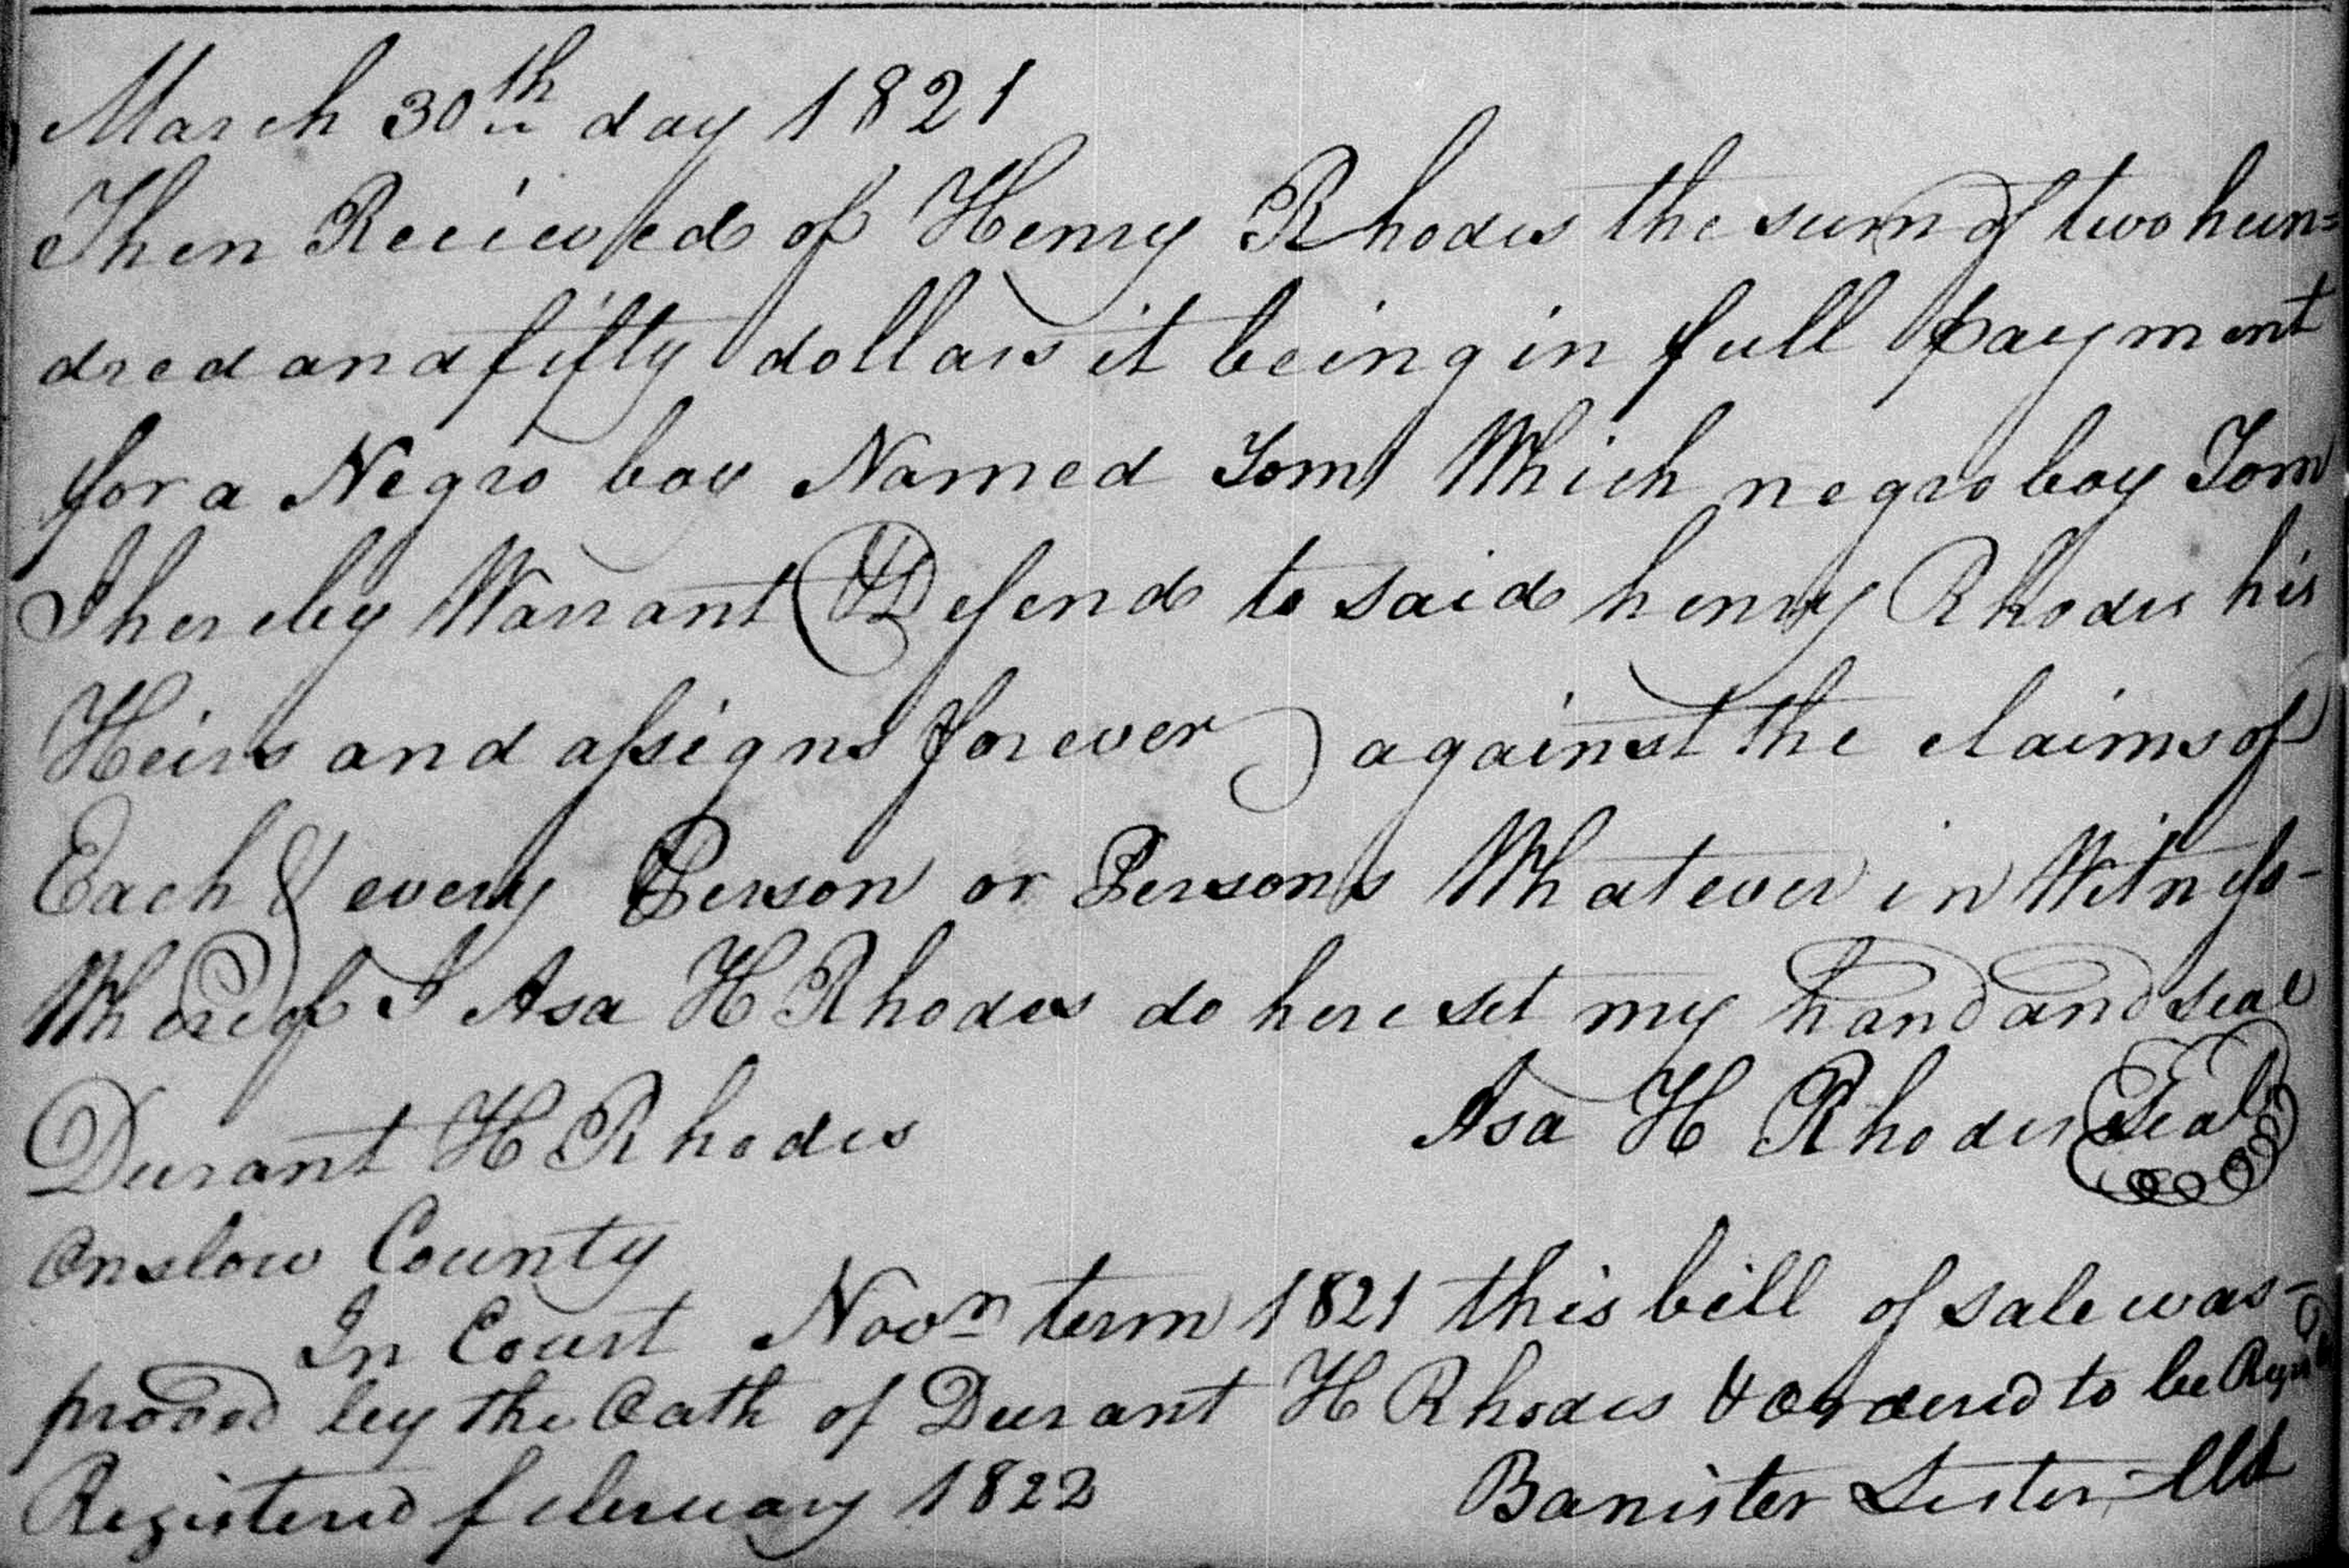 March 30th day 1821
Then Recieved of Henry Rhodes the sum of two hun=
dred and fifty dollars it being in full payment
for a Negro boy Named Tom Which negro boy Tom
I hereby Warrant & Defend to said henry Rhodes his
Heirs and assigns forever against the claims of
Each & every Person or Persons Whatever in Witness-
Whereof I Asa H Rhodes do here set my hand and seal
Durant H Rhodes Asa H Rhodes Seal
Onslow County
In Court Novn term 1821 this bill of sale was-
proved by the Oath of Durant H Rhodes & ordered to be
Registered february 1822 Banister Lester Clk